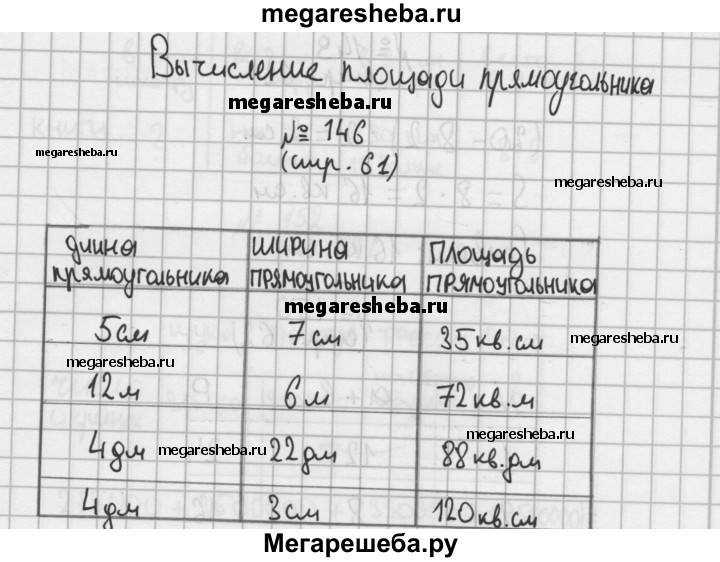 megaresheba.ru
Вычисление площади прямоугольника
megaresheba.ru
№ 146
megaresheba.ru
(стр. 61)
megaresheba.ru
длина прямоугольника | ширина прямоугольника | площадь прямоугольника
megaresheba.ru
5см 7см 35кв.см
megaresheba.ru
megaresheba.ru
12м 6м 72кв.м
megaresheba.ru
4дм megaresheba.ru 22дм 88кв.дм
4дм 3см 120кв.см
Мегарешеба.ру